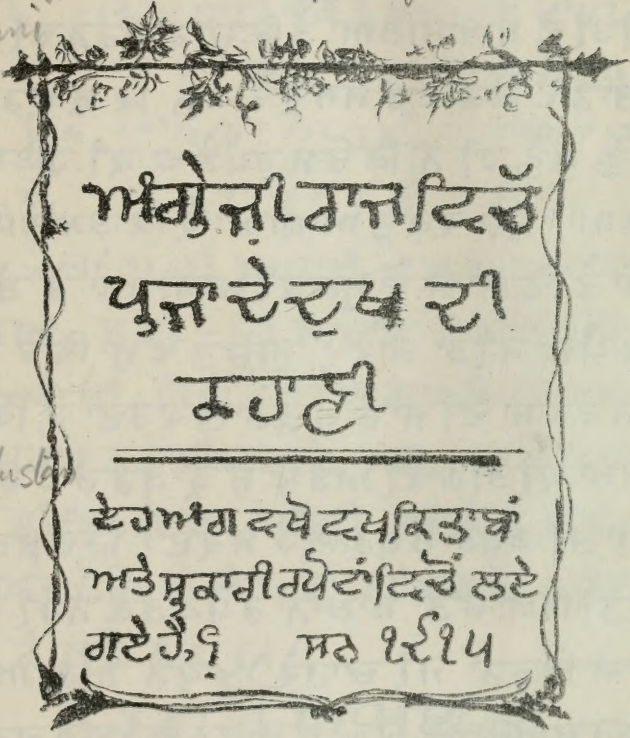 ਅੰਗ੍ਰੇਜ਼ੀ ਰਾਜ ਵਿਚੱ
ਪ੍ਰਜਾ ਦੇ ਦੁਖ ਦੀ
ਕਹਾਣੀ
ਏਹ ਅੰਗ ਵਖੋ ਵਖ ਕਿਤਾਬਾਂ
ਅਤੇ ਸ੍ਰਕਾਰੀ ਰਪੋਟਾਂ ਵਿਚੋਂ ਲਏ
ਗਏ ਹੈਂ, ਸਨ ੧੯੧੫